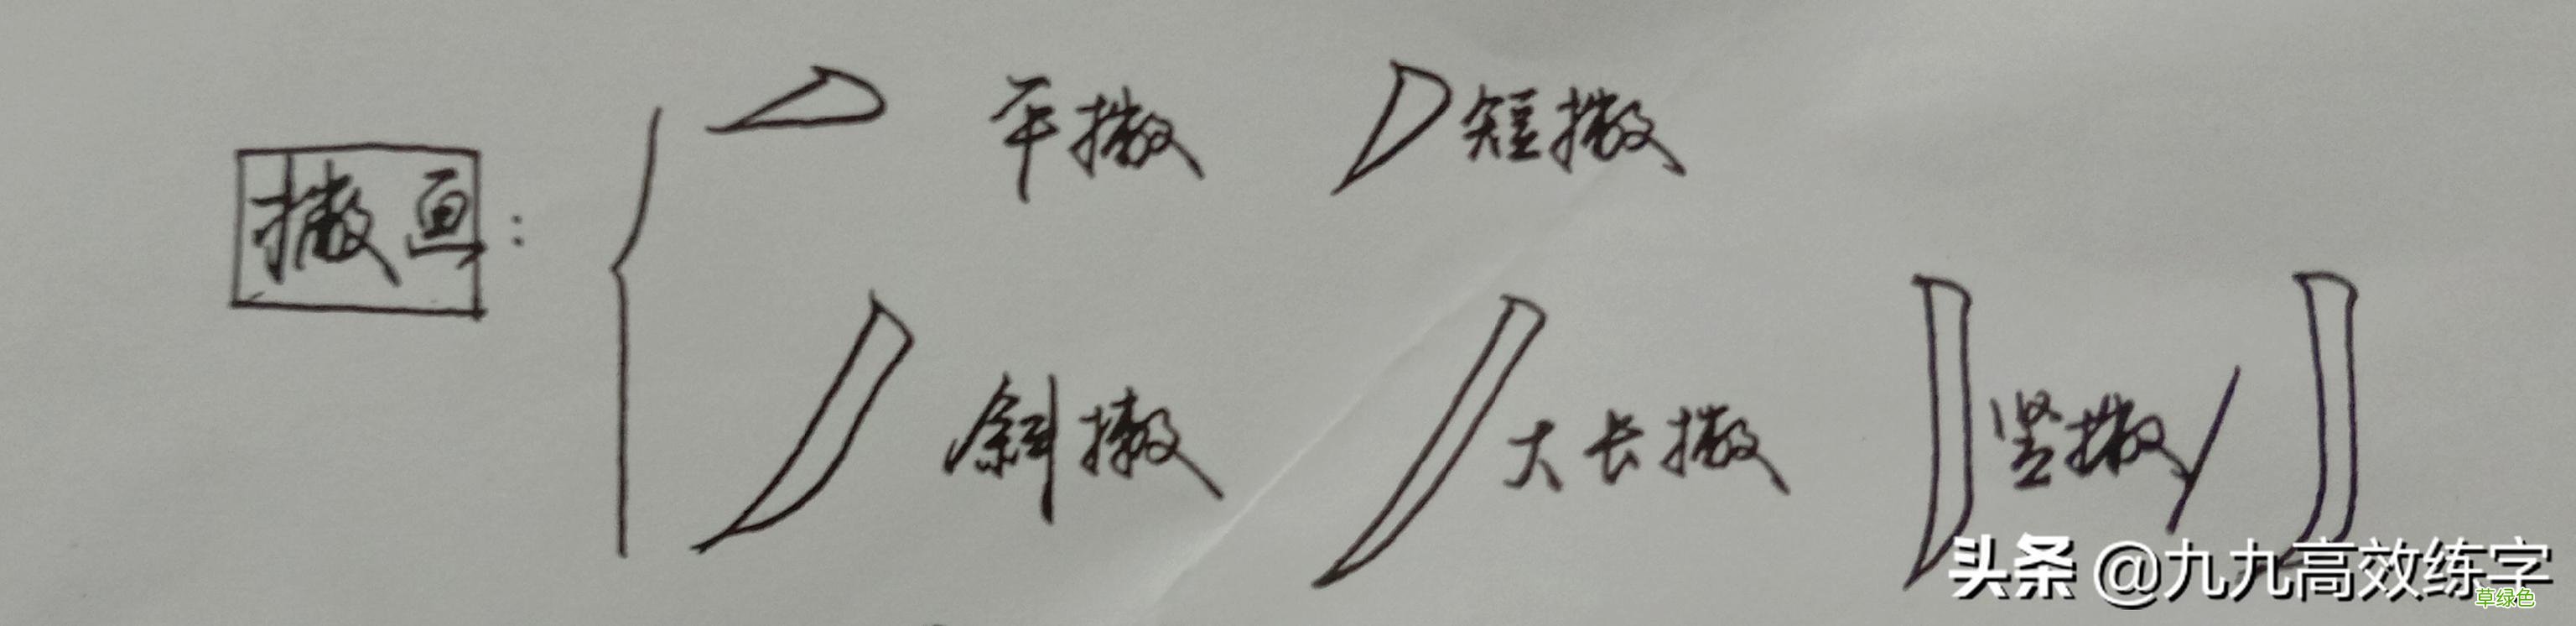 撇画:
平撇 短撇
斜撇 大长撇 竖撇/
头条 @九九高效练字
草绿色